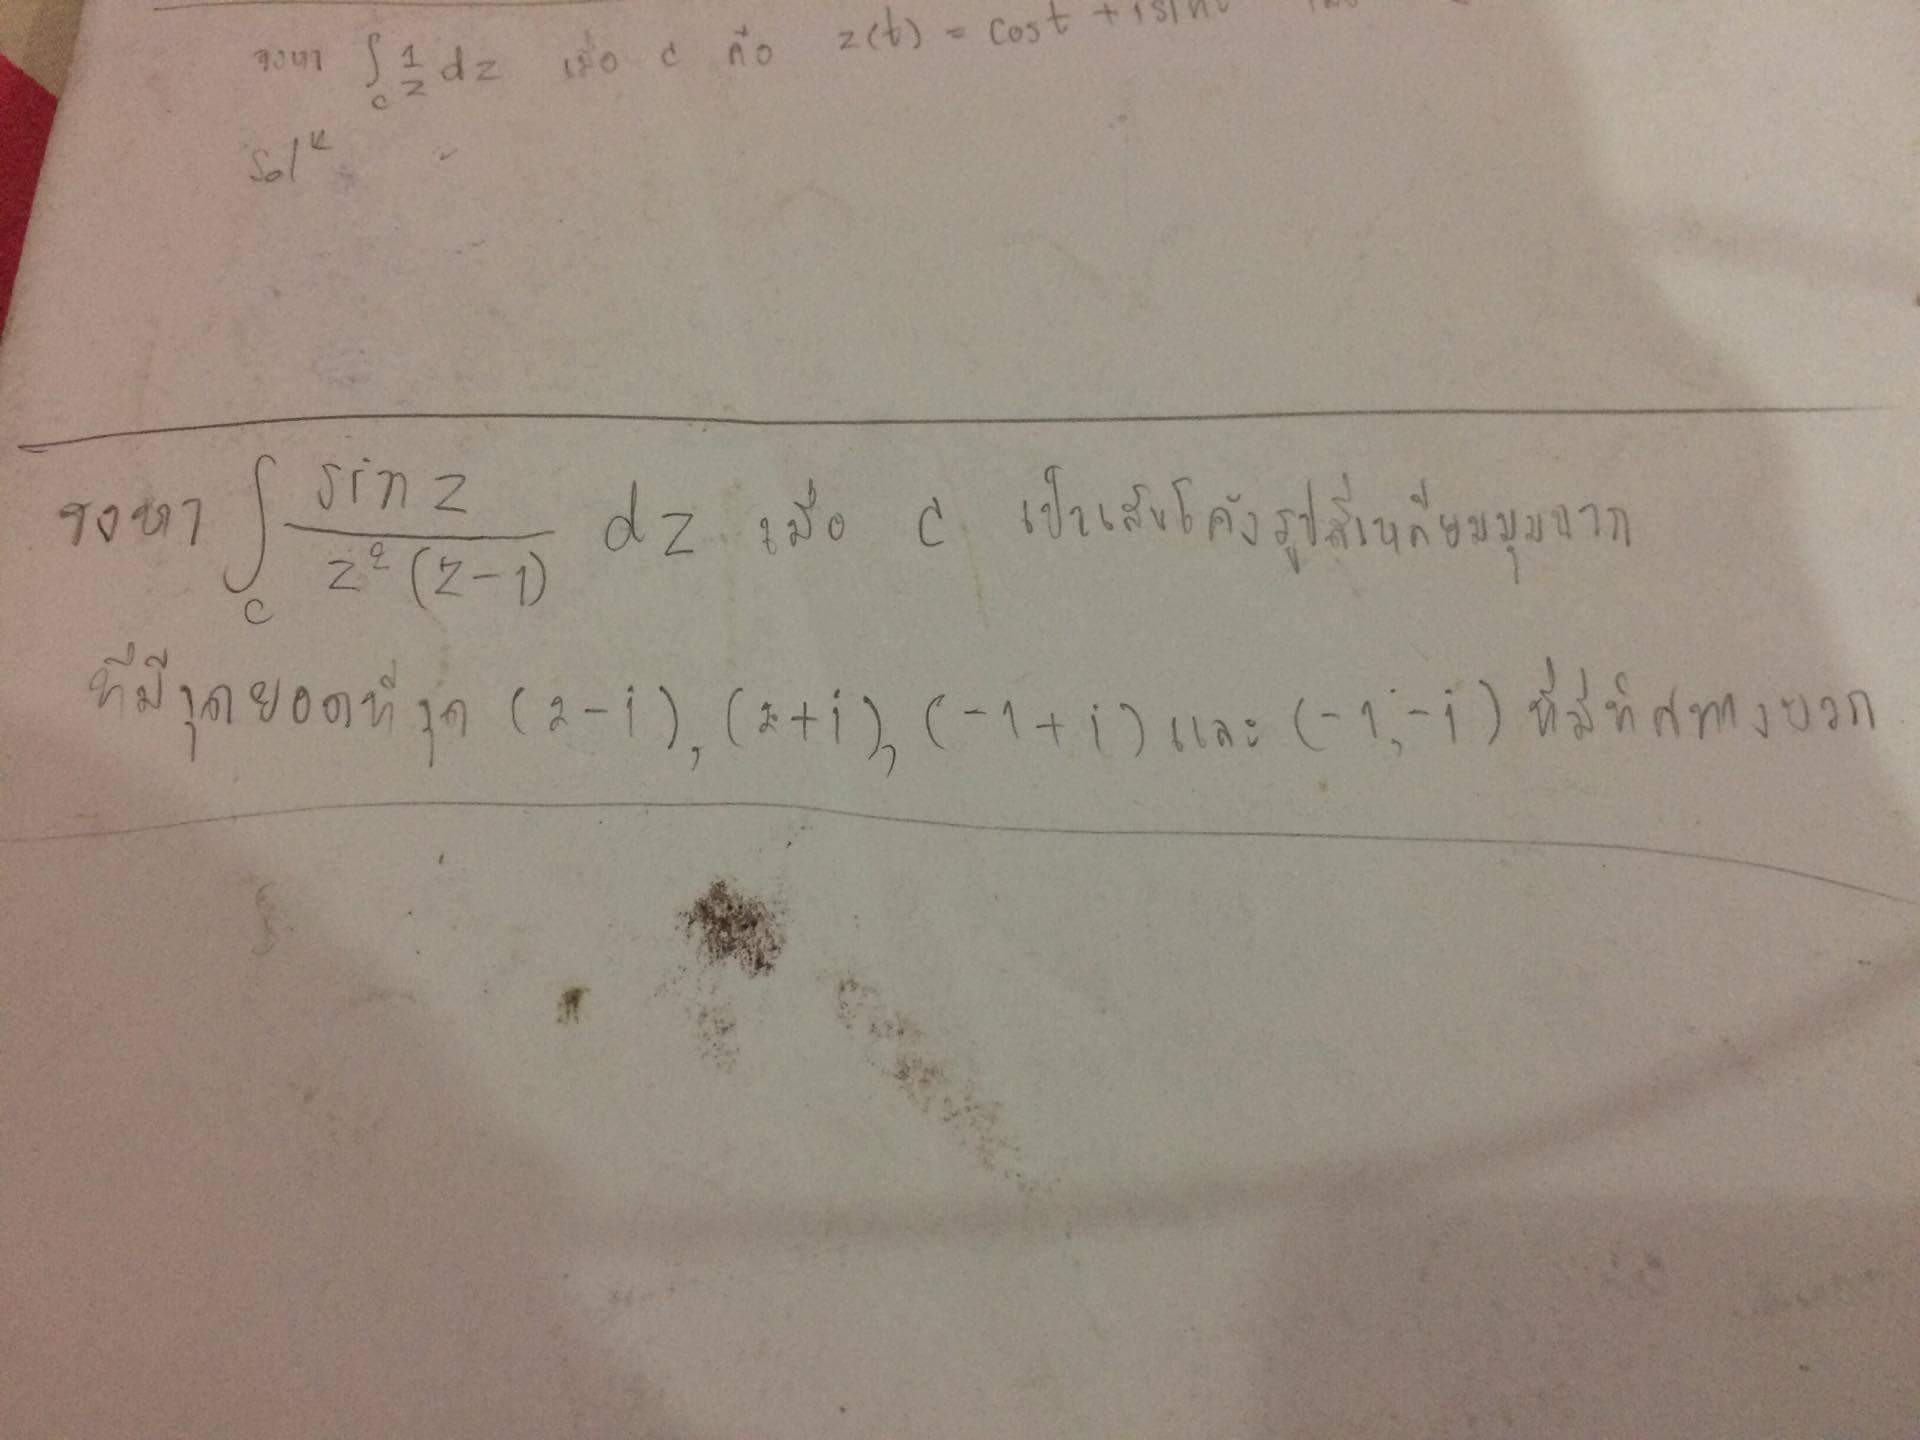 จงหา ∫_c 1/z dz เมื่อ c คือ z(t) = cost + isint
Solⁿ
จงหา ∫_c sin z / z²(z-1) dz เมื่อ c เป็นเส้นโค้งรูปสี่เหลี่ยมมุมฉาก
ที่มีจุดยอดที่จุด (2-i), (2+i), (-1+i) และ (-1,-i) ที่มีทิศทางบวก